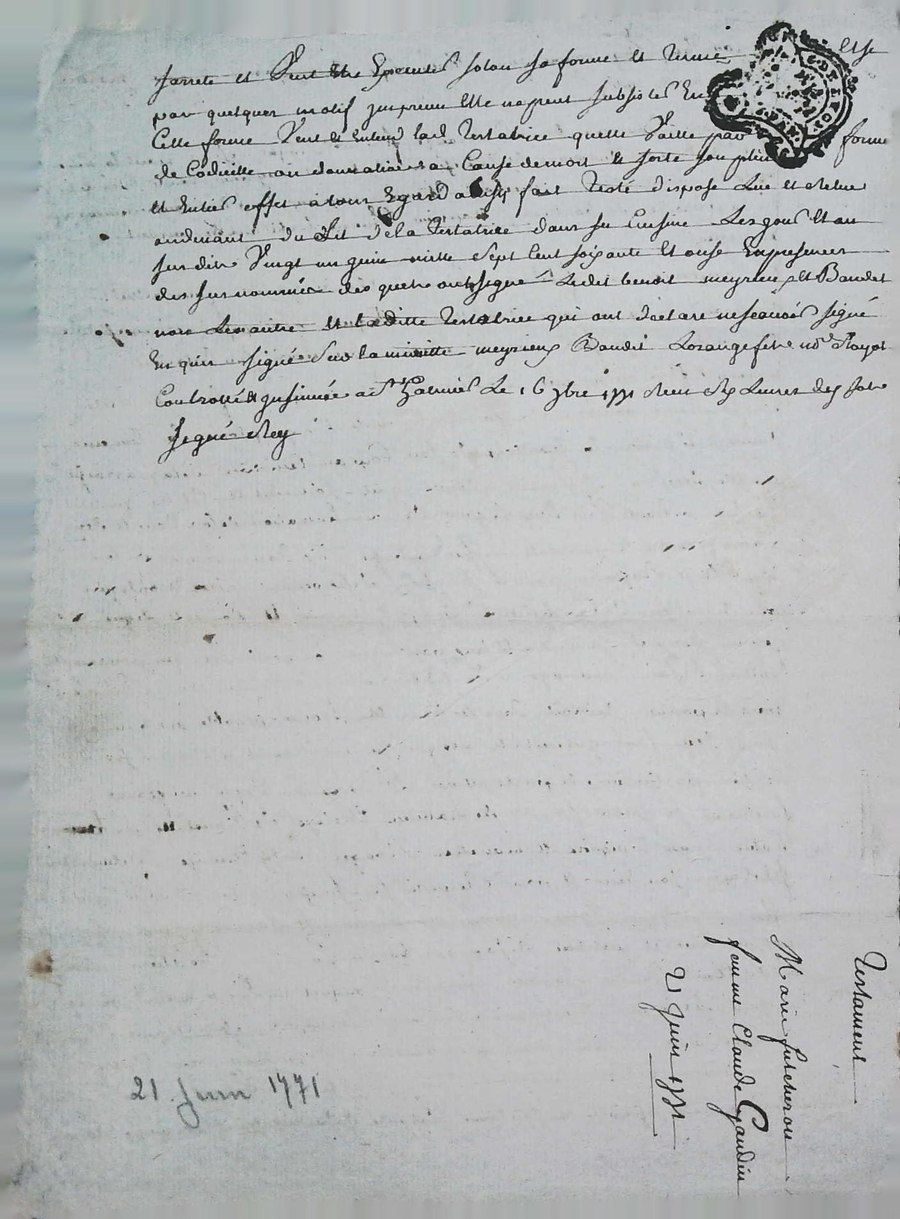 sarrete et Veut Etre Executés selon sa forme et teneur Et si
par quelques motif imprevu Elle ne peut subsister En
Cette forme Veut et Entend lad. Testatrice quelle Vaille par forme
de Codicille ou donnation a Cause demort et sorte son plein
et Entier effet a tous Egard ainsy fait Testé disposé Lue et relue
audevant du Lit de la Testatrice dans sa Cuisine Lesjour et an
susdits Vingt un juin mille sept Cent soixante et onze En presences
des surnommés desquels ont signé Ledit benoit meyrieu et Baudet
non Les autre et laditte Testatrice qui ont declaré nescavoir signé
Enquis signé sur la minutte meyrieux Baudet
Controllé & insinuée a St Galmier Le 16 9bre 1771 Receu Livres dix sols
signé Rey
Testament
Marie
femme Claude Gaudin
21 juin 1771
21 Juin 1771